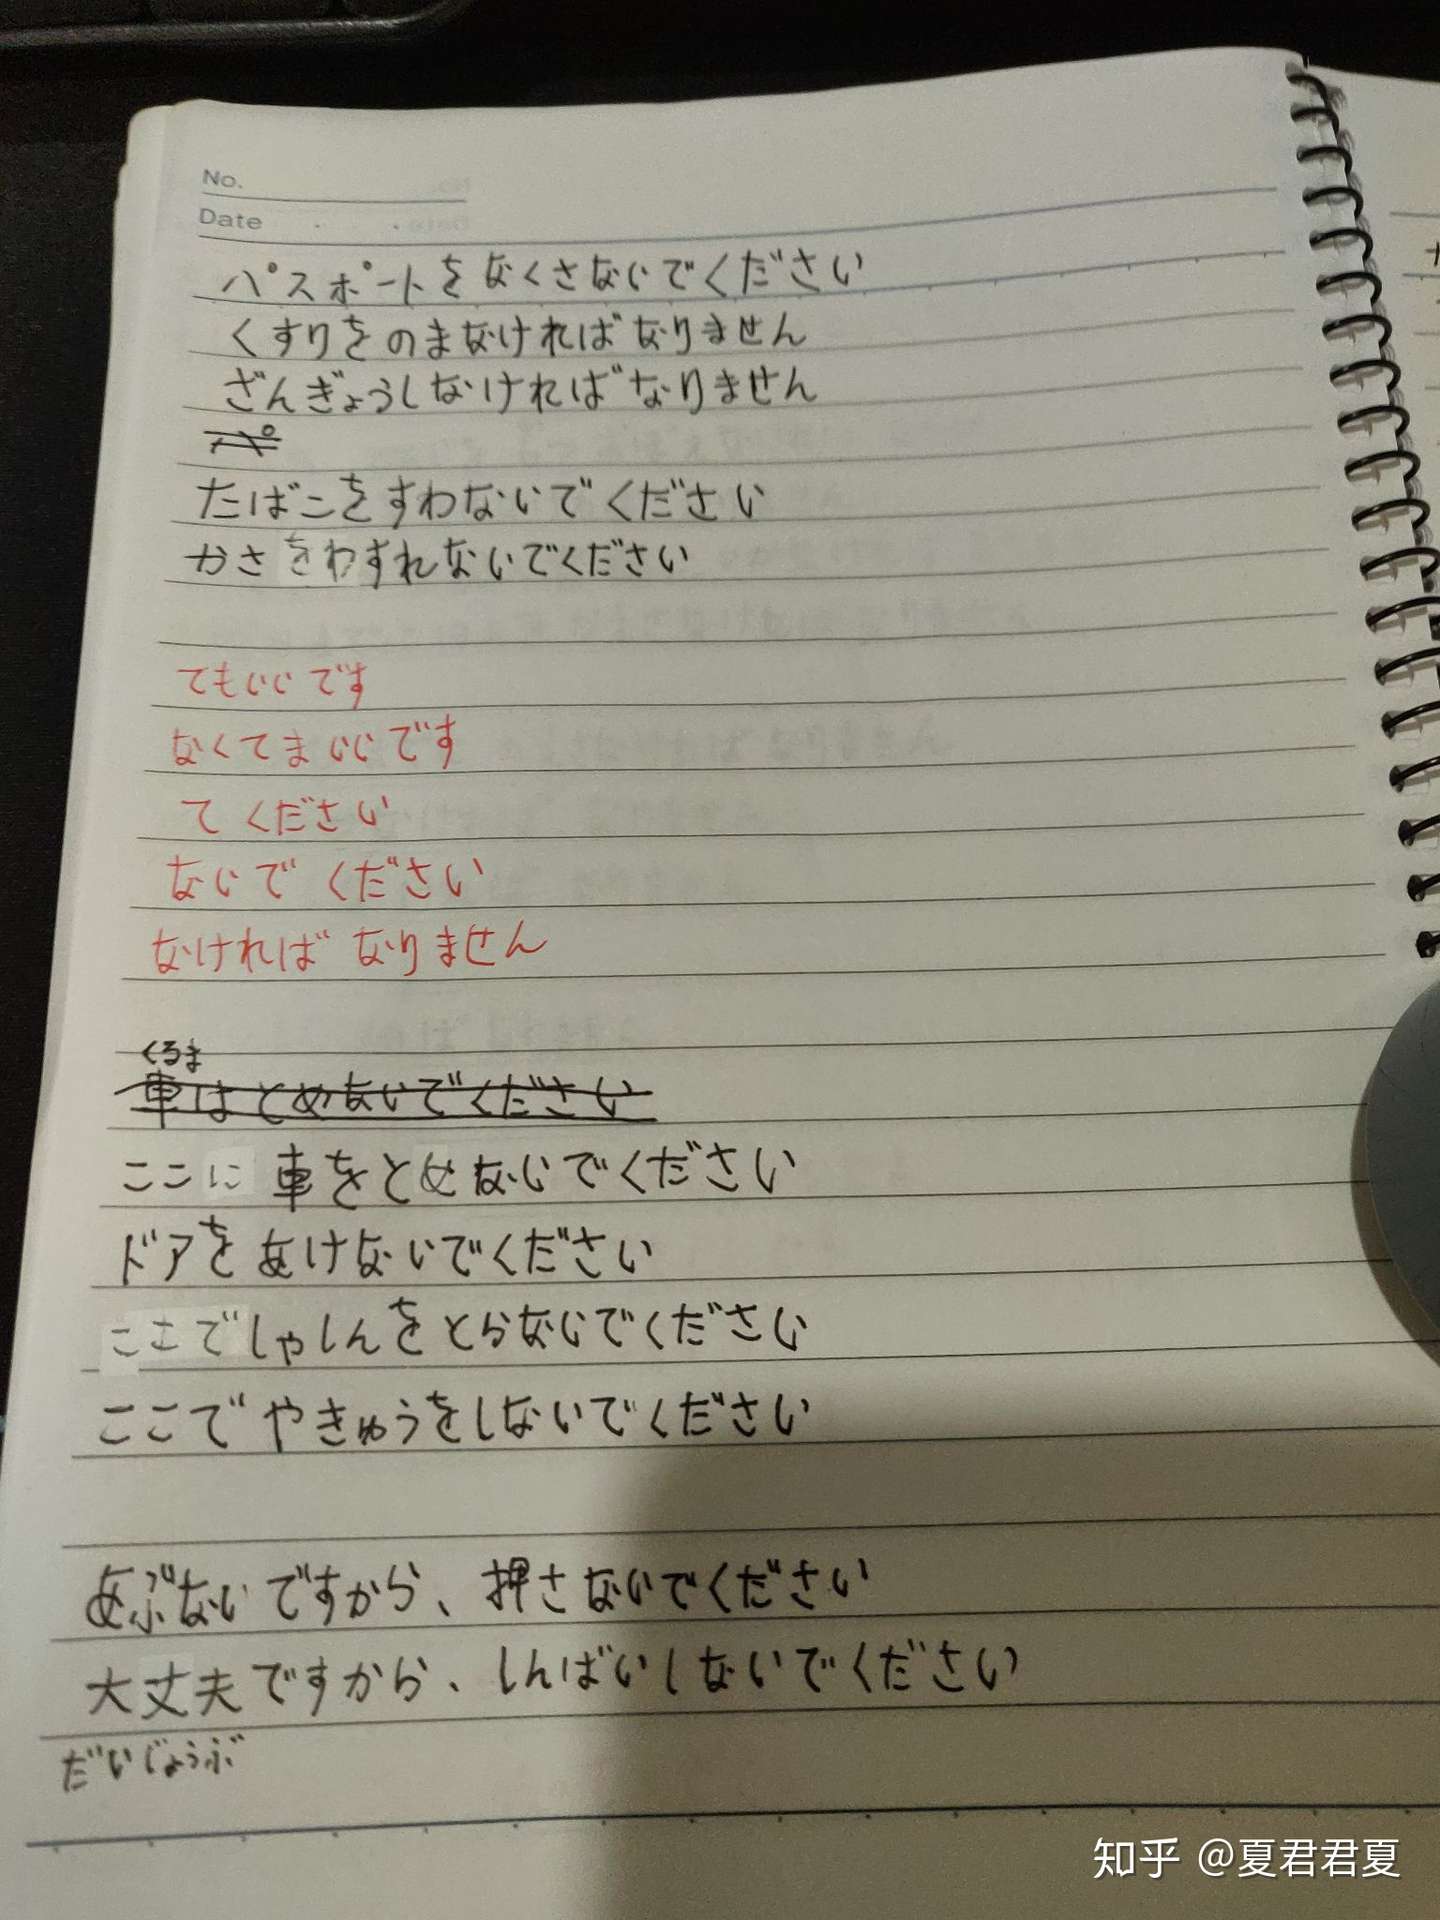 No.
Date
パスポートをなくさないでください
くすりをのまなければなりません
ざんぎょうしなければなりません
パ
たばこをすわないでください
かさをわすれないでください
てもいいです
なくてまいいです
てください
ないでください
なければなりません
くるま
車はとめないでください
ここに車をとめないでください
ドアをあけないでください
ここでしゃしんをとらないでください
ここでやきゅうをしないでください
あぶないですから、押さないでください
大丈夫ですから、しんばいしないでください
だいじょうぶ
知乎 @夏君君夏